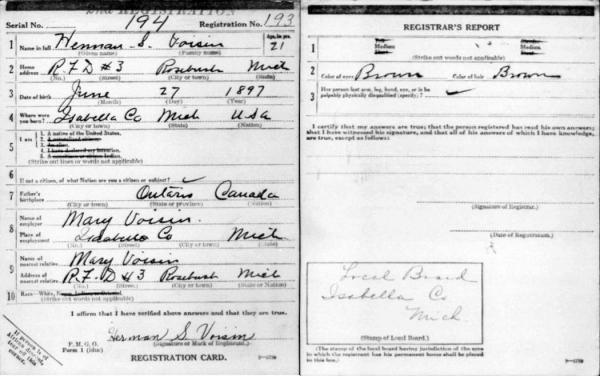 2nd REGISTRATION
Serial No. 194 Registration No. 193
1 Name in full Herman S. Voisin Age, in yrs. 21
(Given name) (Family name)
2 Home address R.F.D #3 Rosebush Mich
(No.) (Street) (City or town) (State)
3 Date of birth June 27 1897
(Month) (Day) (Year)
4 Where were you born? Isabella Co Mich USA
(City or town) (State) (Nation)
5 I am
1. A native of the United States.
2. A naturalized citizen.
3. An alien.
4. I have declared my intention.
5. A noncitizen or citizen Indian.
(Strike out lines or words not applicable)
6 If not a citizen, of what Nation are you a citizen or subject?
7 Father's birthplace Ontario Canada
(City or town) (State or province) (Nation)
8 Name of employer Mary Voisin.
Place of employment Isabella Co Mich
(No.) (Street) (City or town) (State)
9 Name of nearest relative Mary Voisin
Address of nearest relative R.F.D #3 Rosebush Mich
(No.) (Street) (City or town) (State or Nation)
10 Race—White,
(Strike out words not applicable)
I affirm that I have verified above answers and that they are true.
Herman S Voisin
(Signature or Mark of Registrant.)
P. M. G. O.
Form 1 (blue)
REGISTRATION CARD.
If person is of African descent, tear off this corner.
REGISTRAR'S REPORT
1
Medium
Medium
(Strike out words not applicable)
2 Color of eyes Brown Color of hair Brown
3 Has person lost arm, leg, hand, eye, or is he palpably physically disqualified (specify)?
I certify that my answers are true; that the person registered has read his own answers; that I have witnessed his signature, and that all of his answers of which I have knowledge, are true, except as follows:
(Signature of Registrar.)
(Date of Registration.)
Local Board
Isabella Co
Mich
(Stamp of Local Board.)
(The stamp of the local board having jurisdiction of the area in which the registrant has his permanent home shall be placed in this box.)